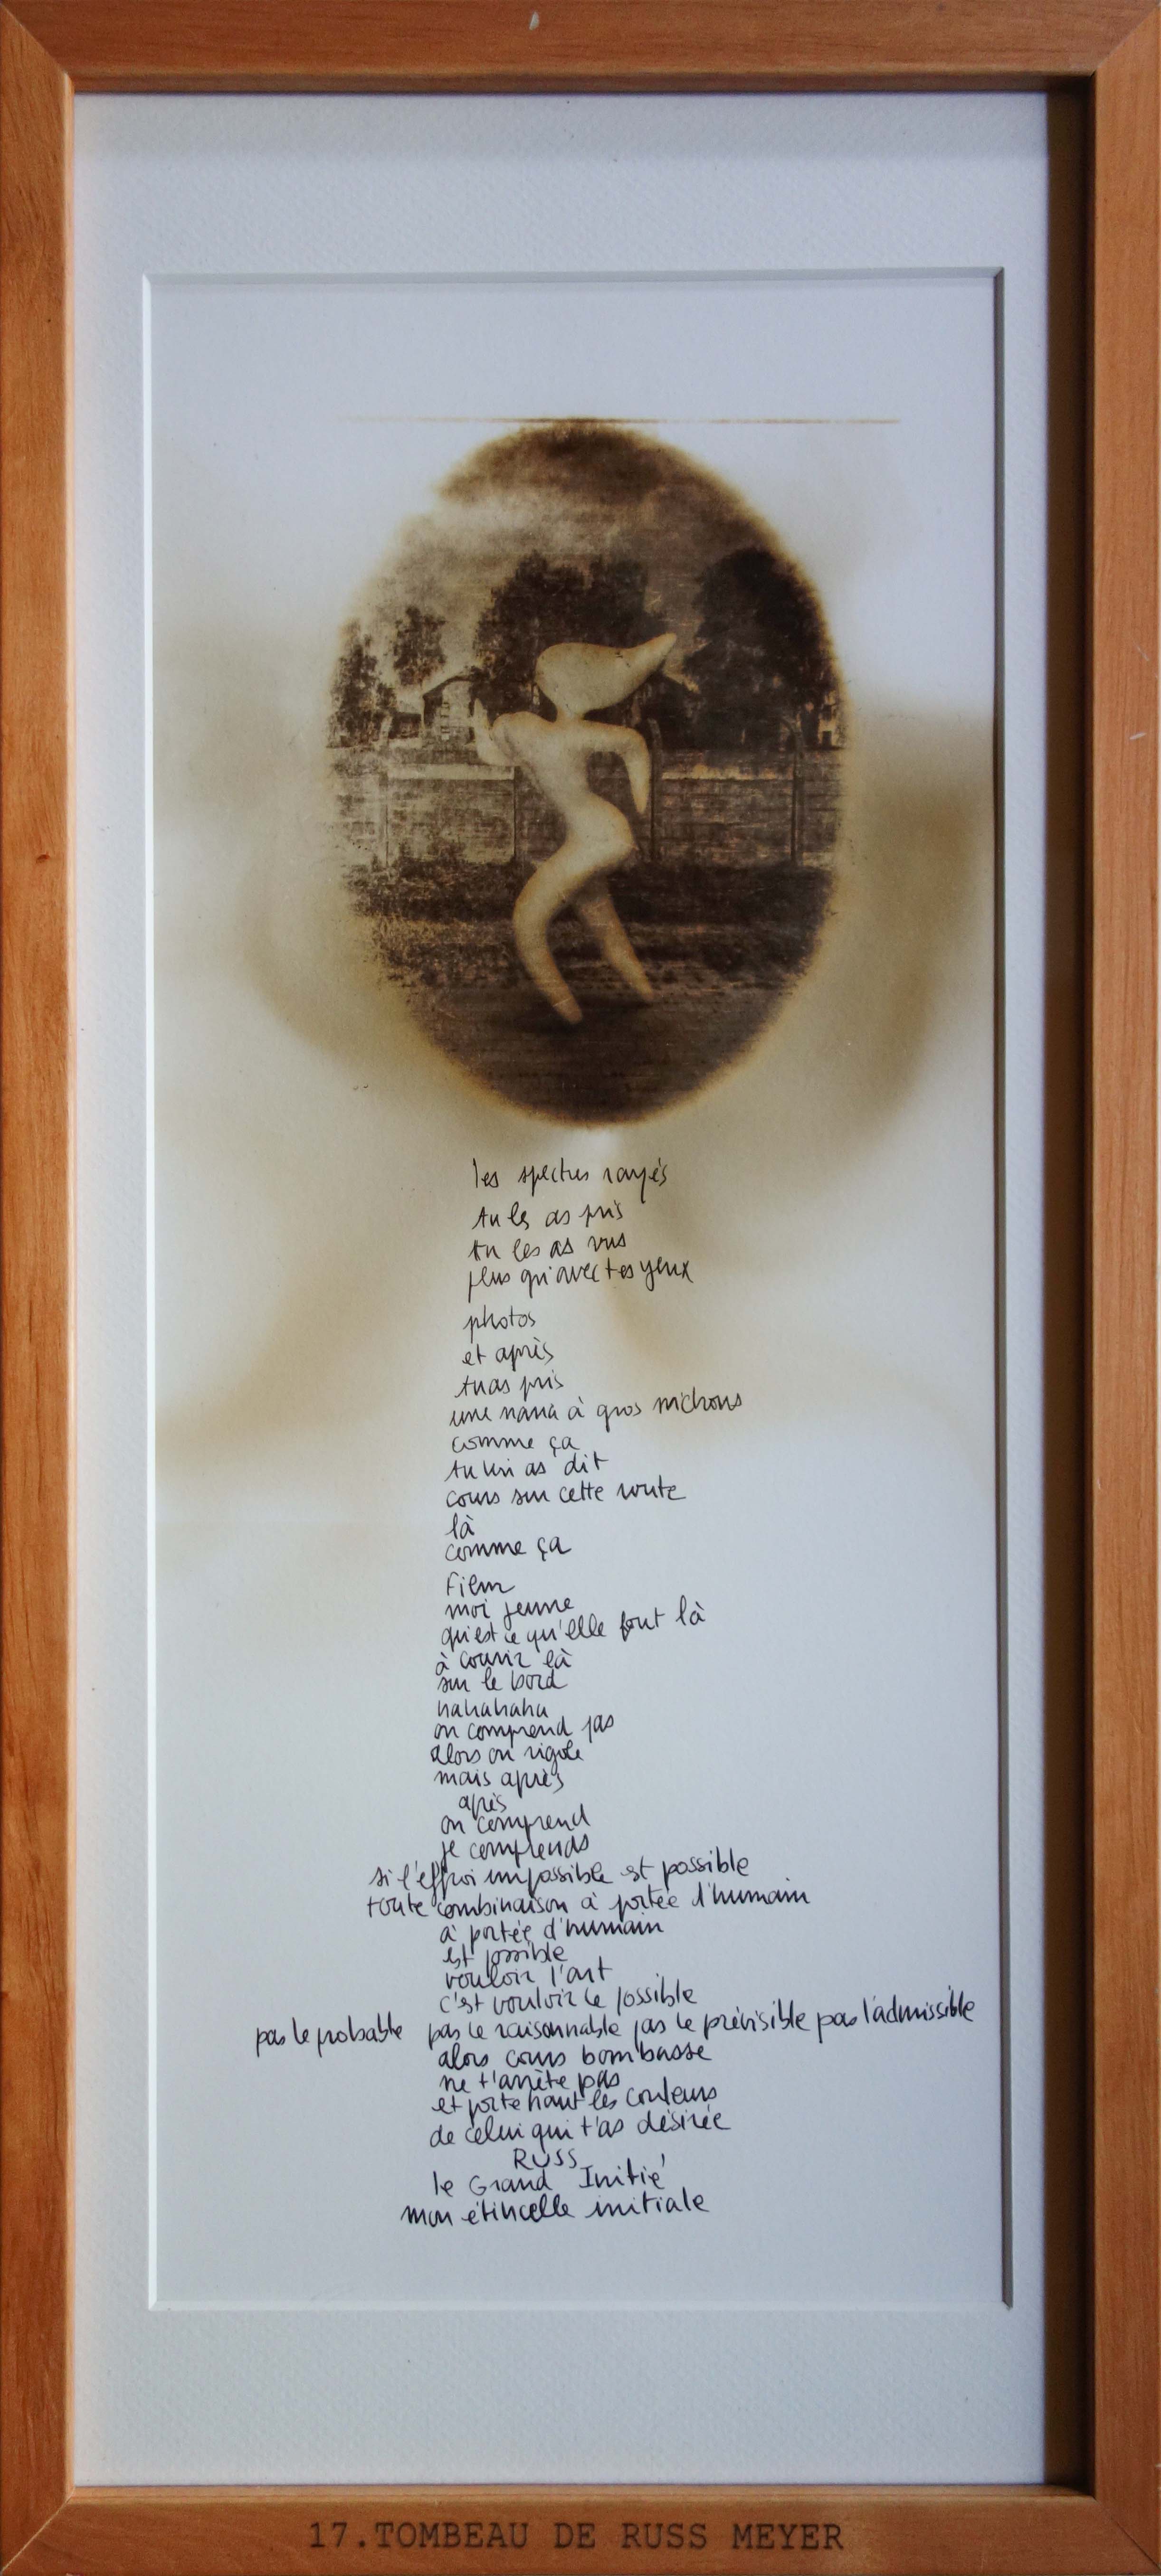 les spectres rayés
tu les as pris
tu les as vus
plus qu'avec tes yeux
photos
et après
tu as pris
une nana à gros nichons
comme ça
tu lui as dit
cours sur cette route
là
comme ça
Film
moi jeune
qu'est ce qu'elle fout là
à courir là
sur le bord
hahahaha
on comprend pas
alors on rigole
mais après
après
on comprend
je comprends
si l'effroi impossible est possible
toute combinaison à portée d'humain
à portée d'humain
est possible
vouloir l'art
c'est vouloir le possible
pas le probable pas le raisonnable pas le prévisible pas l'admissible
alors cours bombasse
ne t'arrête pas
et porte haut les couleurs
de celui qui t'as désirée
RUSS
le Grand Initié
mon étincelle initiale
17.TOMBEAU DE RUSS MEYER